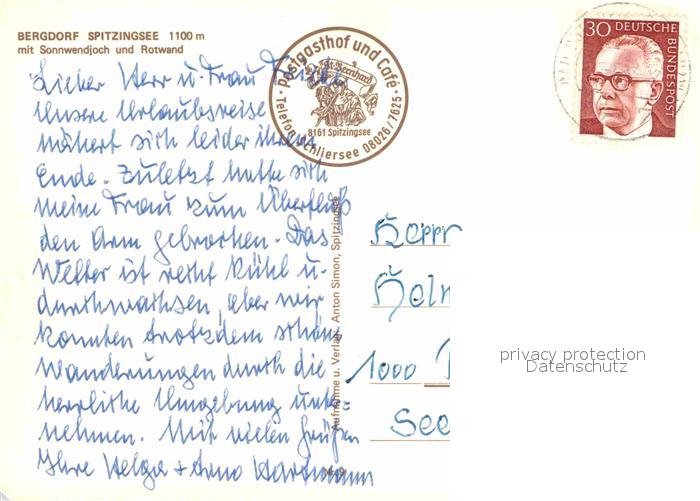 BERGDORF SPITZINGSEE 1100 m
mit Sonnwendjoch und Rotwand
Lieber Herr u. Frau
Unsere Urlaubsreise
nähert sich leider ihrem
Ende. Zuletzt hatte sich
meine Frau zum Überfluß
den Arm gebrochen. Das
Wetter ist recht kühl u.
durchwachsen, aber wir
konnten trotzdem schöne
Wanderungen durch die
herrliche Umgebung unter-
nehmen. Mit vielen Grüßen
Ihre Helga + Arno Hartmann
Postgasthof und Café
St. Bernhard
8161 Spitzingsee
Telefon Schliersee 08026/7625
30 DEUTSCHE
BUNDESPOST
Aufnahme u. Verlag Anton Simon, Spitzingsee
Herrn
1000
See
privacy protection
Datenschutz